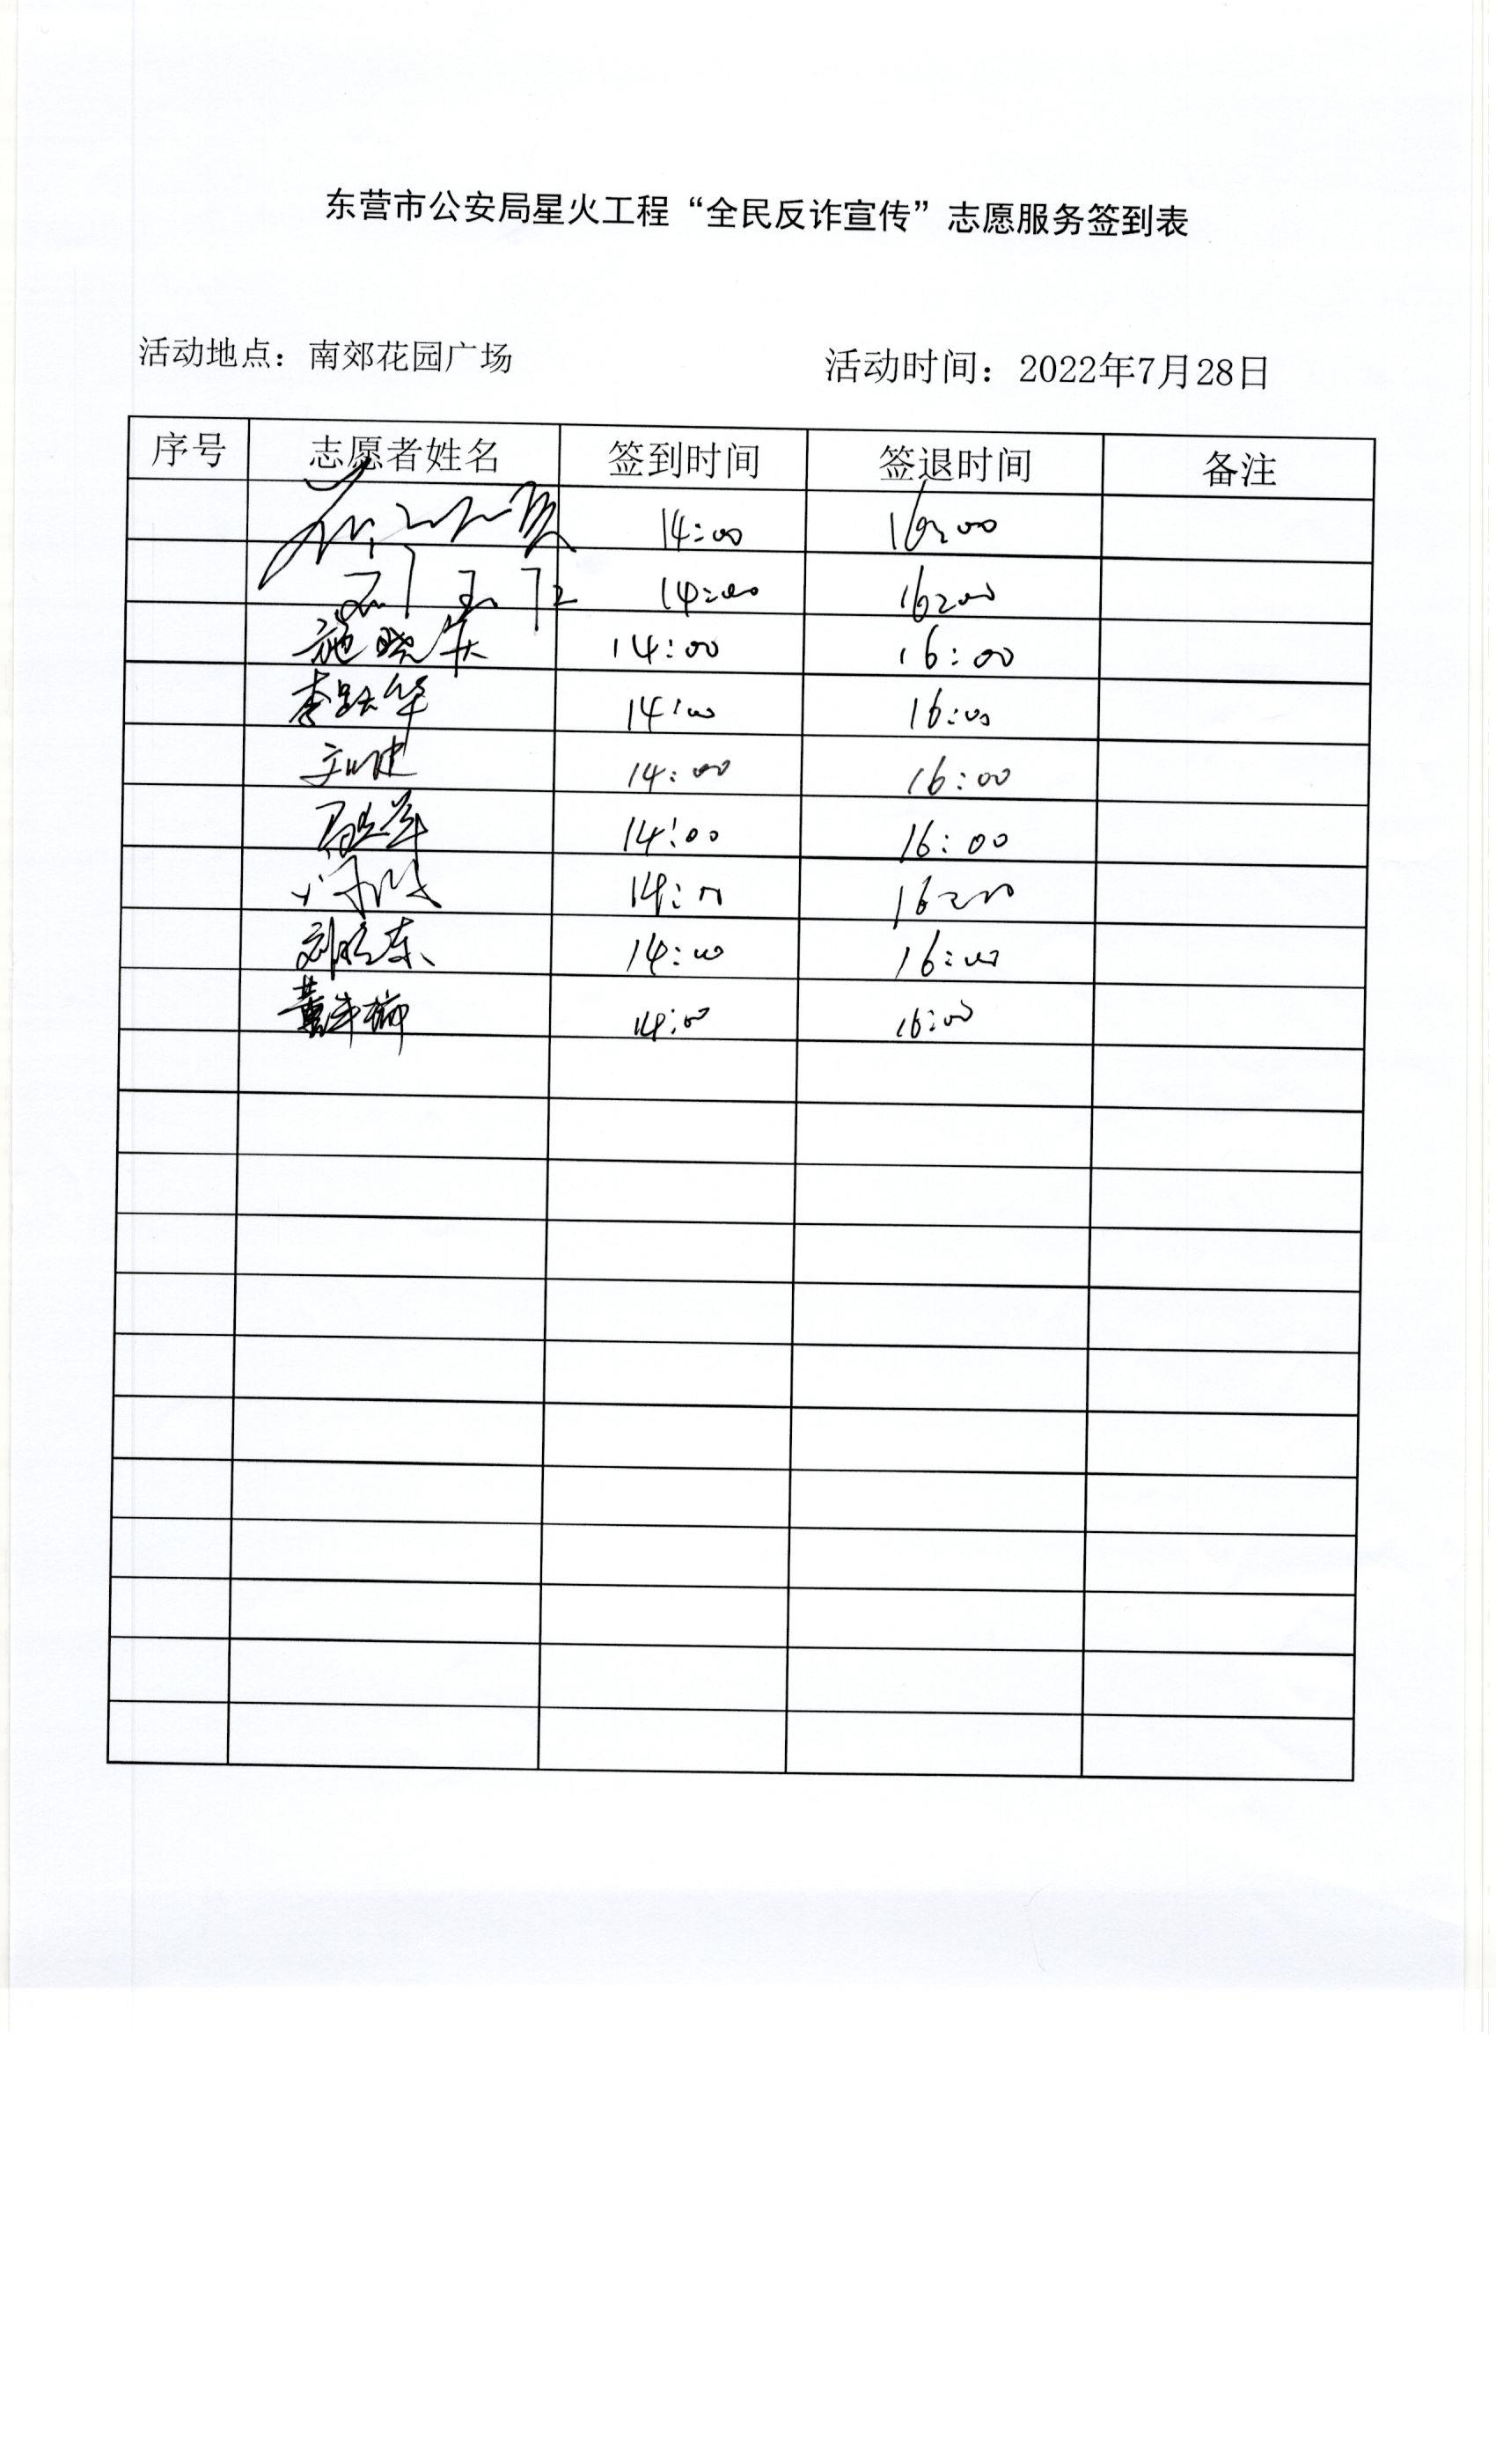 东营市公安局星火工程“全民反诈宣传”志愿服务签到表
活动地点：南郊花园广场 活动时间：2022年7月28日
序号 志愿者姓名 签到时间 签退时间 备注
14:00 16:00
14:00 16:00
施晓庆 14:00 16:00
李跃华 14:00 16:00
14:00 16:00
14:00 16:00
14:00 16:00
刘晓东 14:00 16:00
14:00 16:00